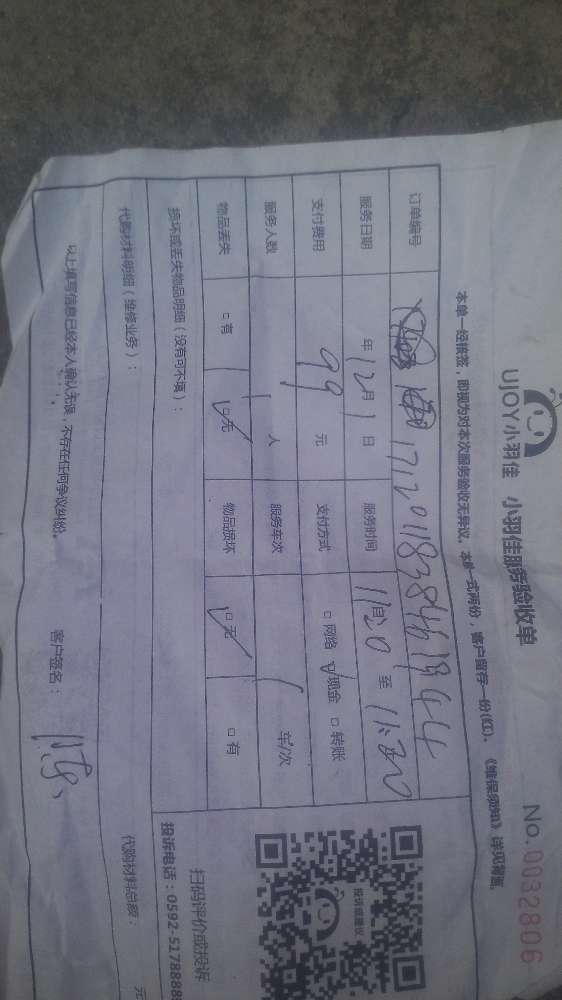 UJOY小羽佳 小羽佳服务验收单 No.0032806
本单一经接签，即视为对本次服务验收无异议，本单一式两份，客户留存一份(红)。《维保须知》详见背面。
订单编号 171201183846
服务日期 年12月1日 服务时间 11:20 至
支付费用 99 元 支付方式 □网络 ☑现金 □转账
服务人数 1 人 服务车次 1 车/次
物品丢失 □有 ☑无 物品损坏 ☑无 □有
损坏或丢失物品明细（没有可不填）：
投诉或建议
扫码评价或投诉
投诉电话：0592-5178888
代购材料明细（维修业务）：
代购材料总额： 元
以上填写信息已经本人确认无误，不存在任何争议纠纷。
客户签名：